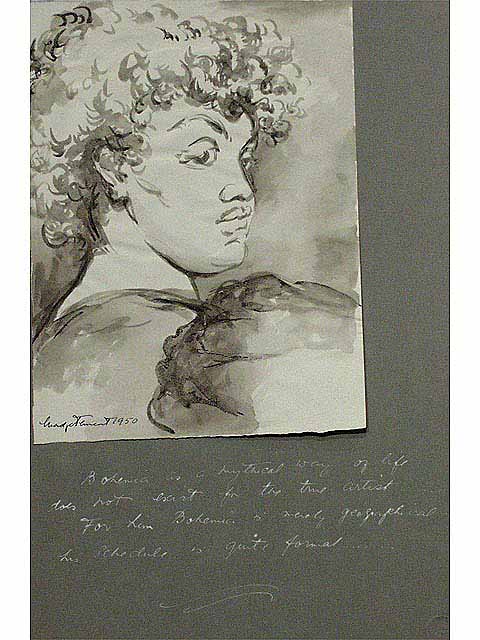 1950
Bohemia is a mythical way of life
does not exist for the true artist
For him Bohemia is merely geographical
his schedule is quite formal